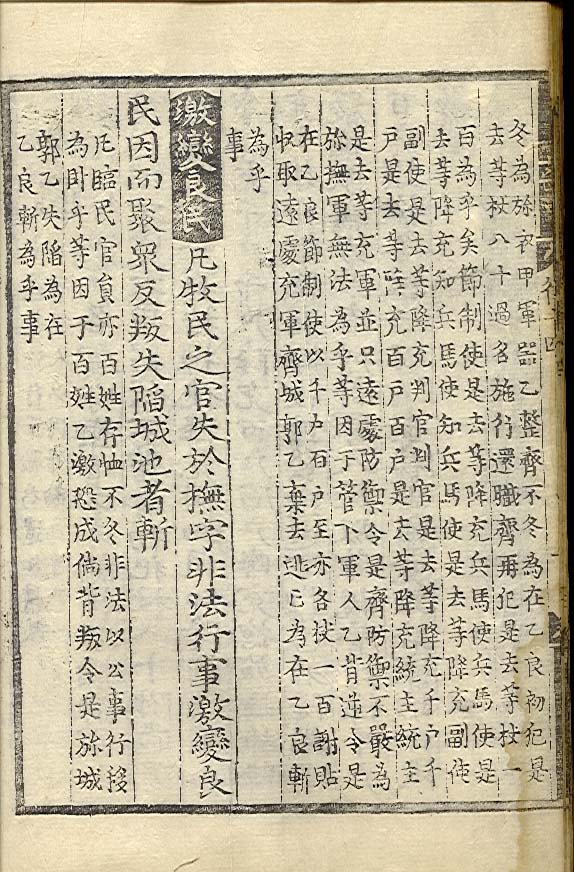 冬為旀衣甲軍器乙整齊不冬為在乙良初犯是
去等杖八十過名施行還職齊再犯是去等杖一
百為乎矣節制使是去等降充兵馬使兵馬使是
去等降充知兵馬使知兵馬使是去等降充副使
副使是去等降充判官判官是去等降充千戶千
戶是去等降充百戶百戶是去等降充統主統主
是去等充軍並只遠處防禦令是齊防禦不嚴為
旀撫軍無法為乎等因于管下軍人乙背逆令是
在乙良節制使以千戶百戶至亦各杖一百謝貼
收取遠處充軍齊城郭乙棄去逃亡為在乙良斬
為乎
事
激變良民 凡牧民之官失於撫字非法行事激變良
民因而聚衆反叛失陷城池者斬
凡臨民官員亦百姓存恤不冬非法以公事行
為臥乎等因于百姓乙激成倘背叛令是旀城
郭乙失陷為在
乙良斬為乎事